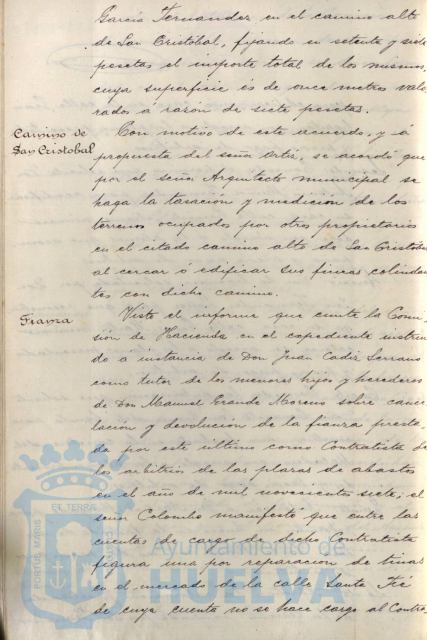 García Fernandez en el camino alto
de San Cristóbal, fijando en setenta y siete
pesetas el importe total de los mismos,
cuya superficie és de once metros valo-
rados á razón de siete pesetas.
Camino de
San Cristobal
Con motivo de este acuerdo, y á
propuesta del señor Ortiz, se acordó que
por el señor Arquitecto municipal se
haga la tasación y medición de los
terrenos ocupados por otros propietarios
en el citado camino alto de San Cristobal
al cercar ó edificar sus fincas colindan-
tes con dicho camino.
Fianza
Visto el informe que emite la Comi-
sión de Hacienda en el expediente instrui-
do á instancia de Don Juan Cadiz Serrano
como tutor de los menores hijos y herederos
de Don Manuel Grande Moreno sobre cance-
lación y devolución de la fianza presta-
da por este último como Contratista de
los arbitrios de las plazas de abastos
en el año de mil novecientos siete; el
señor Colombo manifestó que entre las
cuentas de cargo de dicho Contratista
figura una por reparacion de tinas
en el mercado de la calle Santa Fé
de cuya cuenta no se hace cargo al Contra-
PORTUS MARIS ET TERRAE
Ayuntamiento de
HUELVA